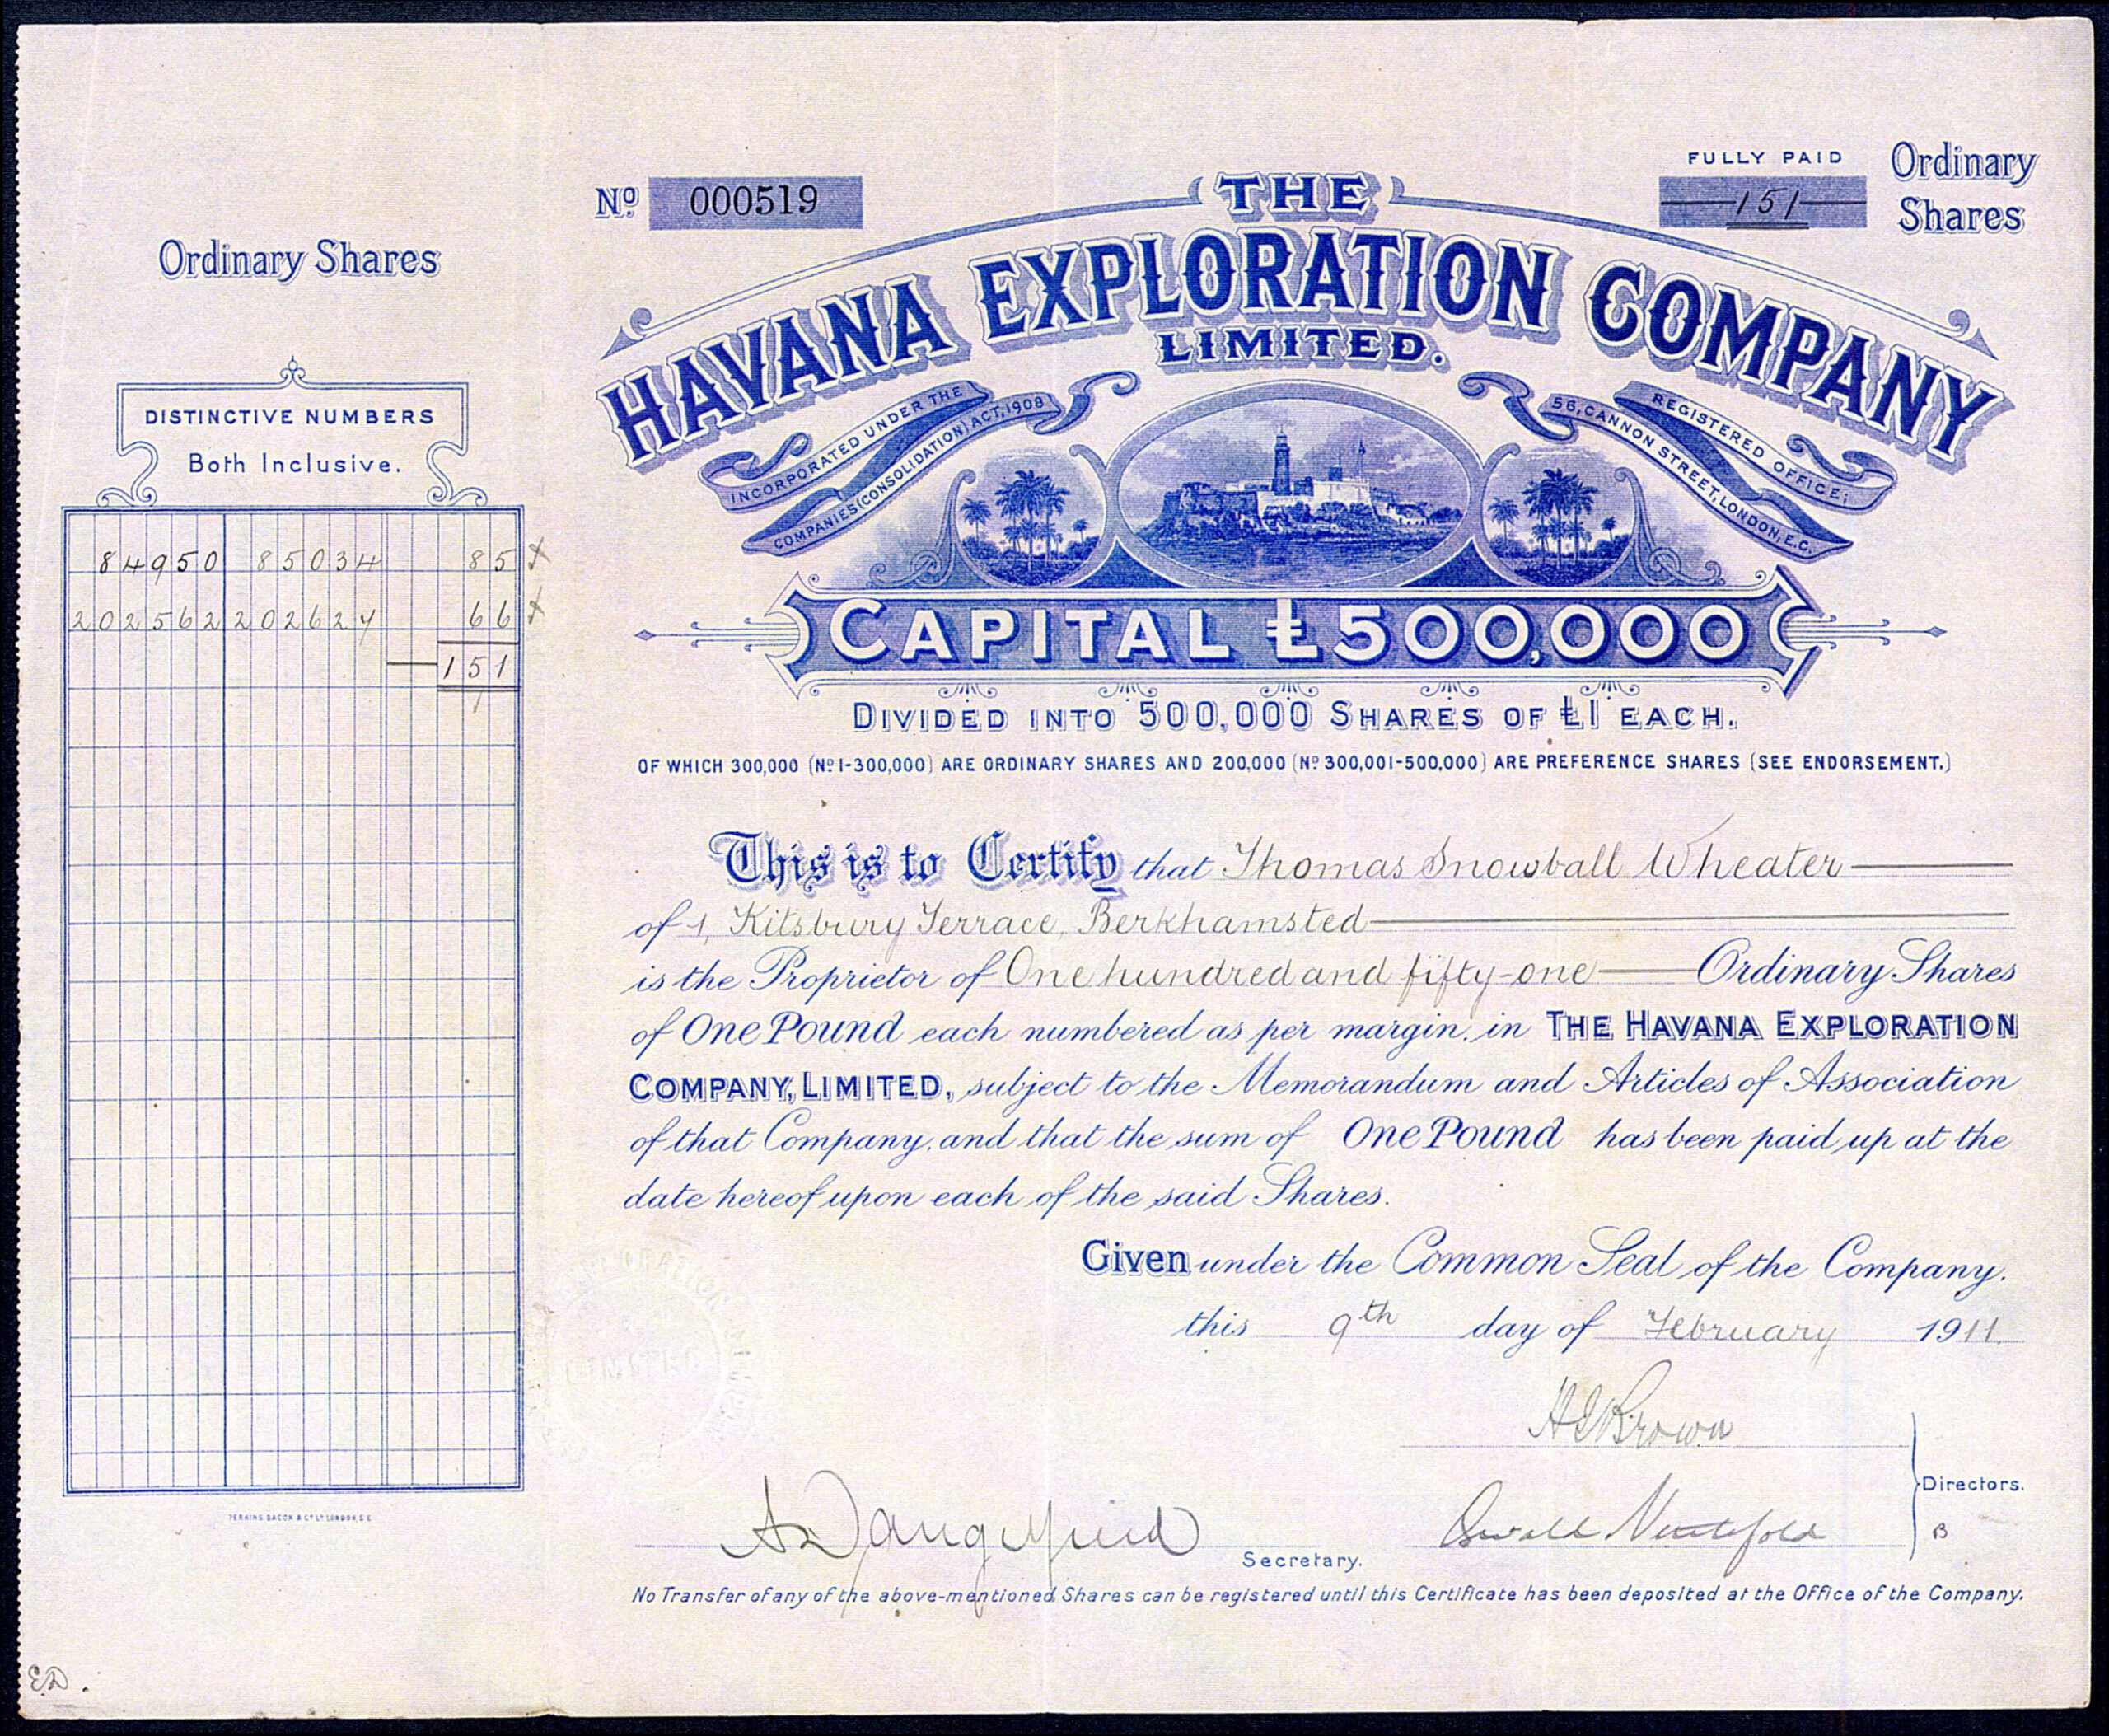 Ordinary Shares
DISTINCTIVE NUMBERS
Both Inclusive.
84950 85034 85
202562 202627 66
151
PERKINS, BACON & Co LD LONDON, E.C.
E.D.
No. 000519
FULLY PAID
151
Ordinary
Shares
THE
HAVANA EXPLORATION COMPANY
LIMITED.
INCORPORATED UNDER THE
COMPANIES (CONSOLIDATION) ACT, 1908
REGISTERED OFFICE;
56, CANNON STREET, LONDON, E.C.
CAPITAL £500,000
DIVIDED INTO 500,000 SHARES OF £1 EACH.
OF WHICH 300,000 (No 1-300,000) ARE ORDINARY SHARES AND 200,000 (No 300,001-500,000) ARE PREFERENCE SHARES (SEE ENDORSEMENT.)
This is to Certify that Thomas Snowball Wheater
of 1, Kitsbury Terrace, Berkhamsted
is the Proprietor of One hundred and fifty-one Ordinary Shares
of One Pound each numbered as per margin, in THE HAVANA EXPLORATION
COMPANY, LIMITED, subject to the Memorandum and Articles of Association
of that Company, and that the sum of One Pound has been paid up at the
date hereof upon each of the said Shares.
Given under the Common Seal of the Company.
this 9th day of February 1911.
LIMITED
Brown
Directors.
B
Secretary.
No Transfer of any of the above-mentioned Shares can be registered until this Certificate has been deposited at the Office of the Company.